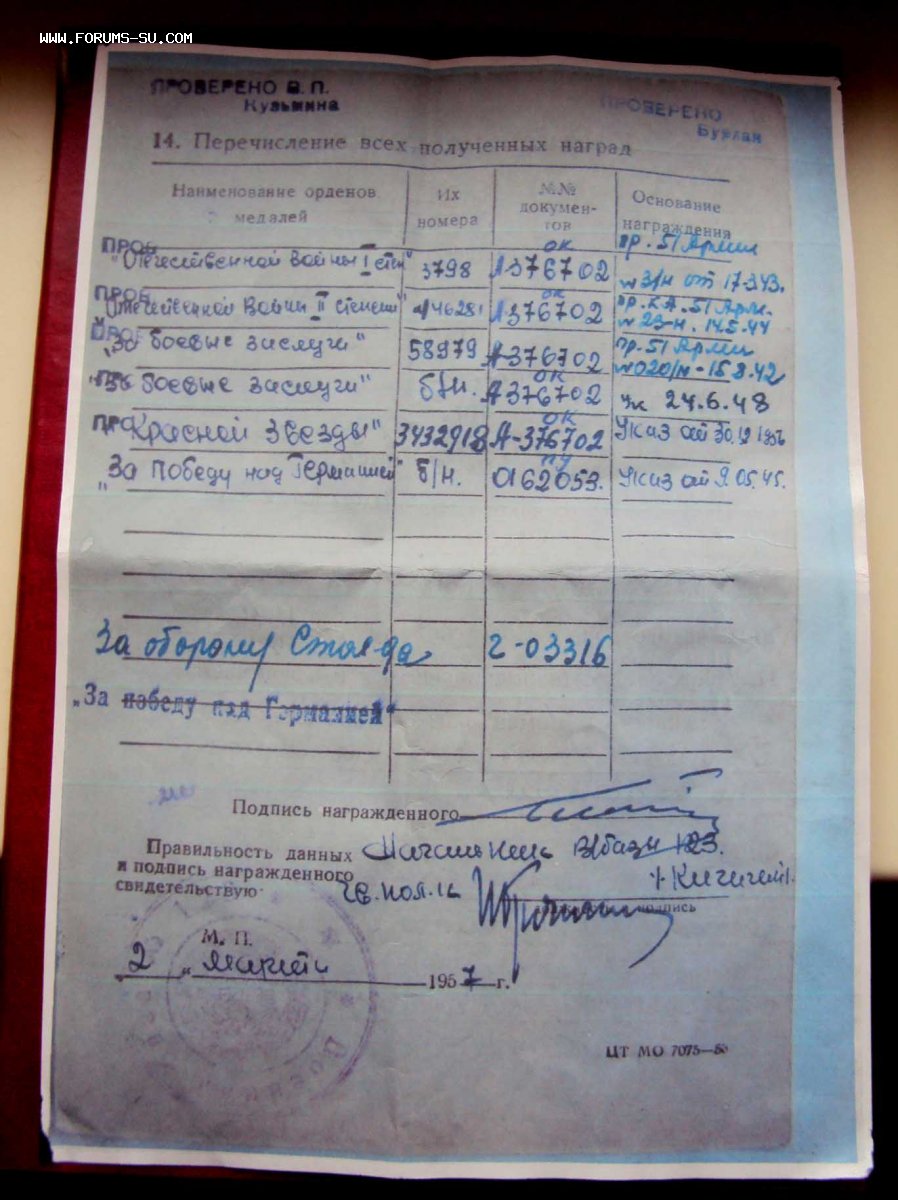 WWW.FORUMS-SU.COM
ПРОВЕРЕНО В. П.
Кузьмина
ПРОВЕРЕНО
Бурлан
14. Перечисление всех полученных наград
Наименование орденов
медалей
Их
номера
№№
докумен-
тов
Основание
награждения
ПРОВ
"Отечественной войны I степ" 3798 ОК А-376702 пр. 51 Армии
№ 3/н от 17.3.43.
ПРОВ
Отечественной Войны II степени" ОК А-376702 пр. 51 Арм.
№ 23-н. 14.5.44
ПРОВ
"За боевые заслуги" 58979 А-376702 пр. 51 Армии
№ 020/н - 15.8.42
"За боевые заслуги" б/н. ОК А376702 Ук 24.6.48
ПРО
"Красной Звезды" 3432918 ОК А-376702 Указ от 30.12.1956
"За победу над Германией" б/н. 0162053. Указ от 9.05.45.
За оборону Стал-да 2-03316
„За победу над Германией"
Подпись награжденного
Правильность данных
и подпись награжденного
свидетельствую
в/базы 123.
подпись
М. П.
2 „ марта 1957 г.
ЦТ МО 7075—56